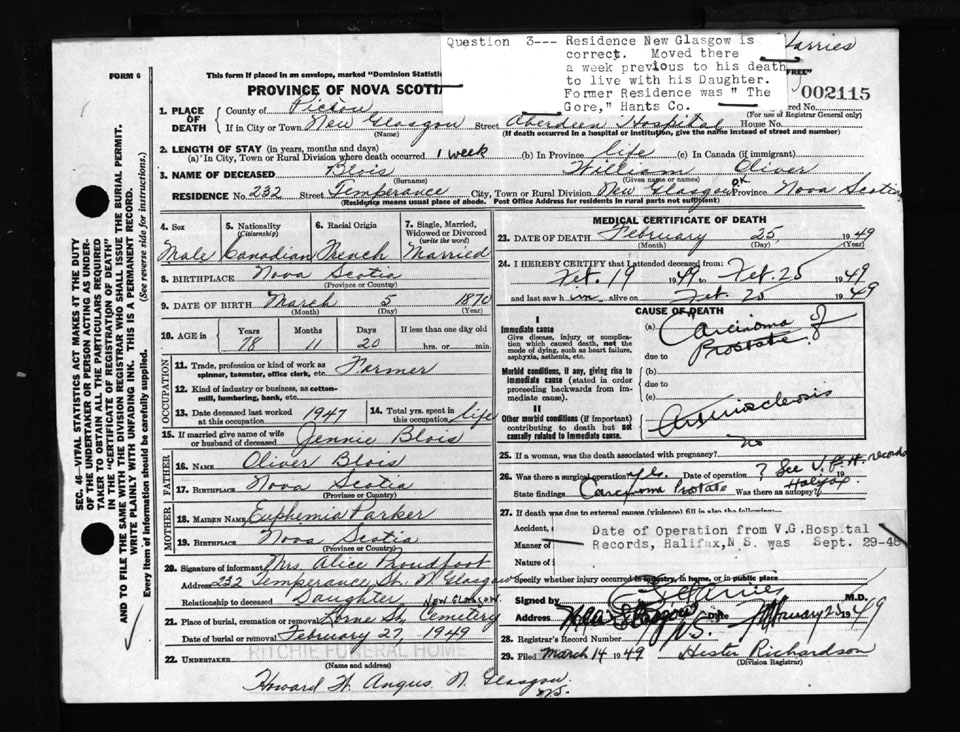 Question 3--- Residence New Glasgow is
correct. Moved there
a week previous to his death
to live with his Daughter.
Former Residence was " The
Gore," Hants Co.
Harries
FREE"
FORM 6
This form if placed in an envelope, marked "Dominion Statistic
PROVINCE OF NOVA SCOTIA
002115
red No.
(For use of Registrar General only)
1. PLACE OF DEATH
County of Pictou
If in City or Town New Glasgow Street Aberdeen Hospital House No.
(Name) (If death occurred in a hospital or institution, give the name instead of street and number)
2. LENGTH OF STAY (in years, months and days)
(a) In City, Town or Rural Division where death occurred 1 week (b) In Province life (c) In Canada (if immigrant)
3. NAME OF DECEASED Blois William Oliver
(Surname) (Given name or names)
RESIDENCE No. 232 Street Temperance City, Town or Rural Division New Glasgow Province Nova Scotia
(Residence means usual place of abode. Post Office Address for residents in rural parts not sufficient)
4. Sex
Male
5. Nationality
(Citizenship)
Canadian
6. Racial Origin
French
7. Single, Married,
Widowed or Divorced
(write the word)
Married
8. BIRTHPLACE Nova Scotia
(Province or Country)
9. DATE OF BIRTH March 5 1870
(Month) (Day) (Year)
10. AGE in
Years Months Days If less than one day old
78 11 20 hrs. or min.
OCCUPATION
11. Trade, profession or kind of work as
spinner, teamster, office clerk, etc. Farmer
12. Kind of industry or business, as cotton-
mill, lumbering, bank, etc.
13. Date deceased last worked
at this occupation 1947
14. Total yrs. spent in
this occupation life
15. If married give name of wife
or husband of deceased Jennie Blois
FATHER
16. NAME Oliver Blois
17. BIRTHPLACE Nova Scotia
(Province or Country)
MOTHER
18. MAIDEN NAME Euphemia Parker
19. BIRTHPLACE Nova Scotia
(Province or Country)
20. Signature of informant Mrs Alice Proudfoot
Address 232 Temperance St. N. Glasgow
Relationship to deceased Daughter
NEW GLASGOW.
21. Place of burial, cremation or removal Lorne St. Cemetery
Date of burial or removal February 27 1949
RITCHIE FUNERAL HOME
22. UNDERTAKER
(Name and address)
Howard W. Angus N. Glasgow
N.S.
MEDICAL CERTIFICATE OF DEATH
23. DATE OF DEATH February 25, 1949
(Month) (Day) (Year)
24. I HEREBY CERTIFY that I attended deceased from:
Feb. 19 1949 to Feb. 25 1949
and last saw him alive on Feb. 20 1949
CAUSE OF DEATH
I
Immediate cause
Give disease, injury or compli-
cation which caused death, not the
mode of dying, such as heart failure,
asphyxia, asthenia, etc.
(a) Carcinoma of
Prostate
due to
Morbid conditions, if any, giving rise to
immediate cause (stated in order
proceeding backwards from im-
mediate cause).
(b)
due to
(c)
II
Other morbid conditions (if important)
contributing to death but not
causally related to immediate cause.
Arteriosclerosis
25. If a woman, was the death associated with pregnancy? no
26. Was there a surgical operation? yes. Date of operation ? See V.G.H. records 19
Halifax.
State findings Carcinoma Prostate Was there an autopsy?
27. If death was due to external causes (violence) fill in also the following:
Accident,
Manner of
Nature of i
Date of Operation from V.G.Hospital
Records, Halifax,N.S. was Sept. 29-48
Specify whether injury occurred in industry, in home, or in public place
Signed by Harries M.D.
New Glasgow N.S. Date February 25 1949
28. Registrar's Record Number
29. Filed March 14 1949 Hester Richardson
(Division Registrar)
SEC. 46—VITAL STATISTICS ACT MAKES IT THE DUTY
OF THE UNDERTAKER OR PERSON ACTING AS UNDER-
TAKER TO OBTAIN ALL THE PARTICULARS REQUIRED
IN THE "CERTIFICATE OF REGISTRATION OF DEATH"
AND TO FILE THE SAME WITH THE DIVISION REGISTRAR WHO SHALL ISSUE THE BURIAL PERMIT.
WRITE PLAINLY WITH UNFADING INK. THIS IS A PERMANENT RECORD.
Every item of Information should be carefully supplied. (See reverse side for instructions.)